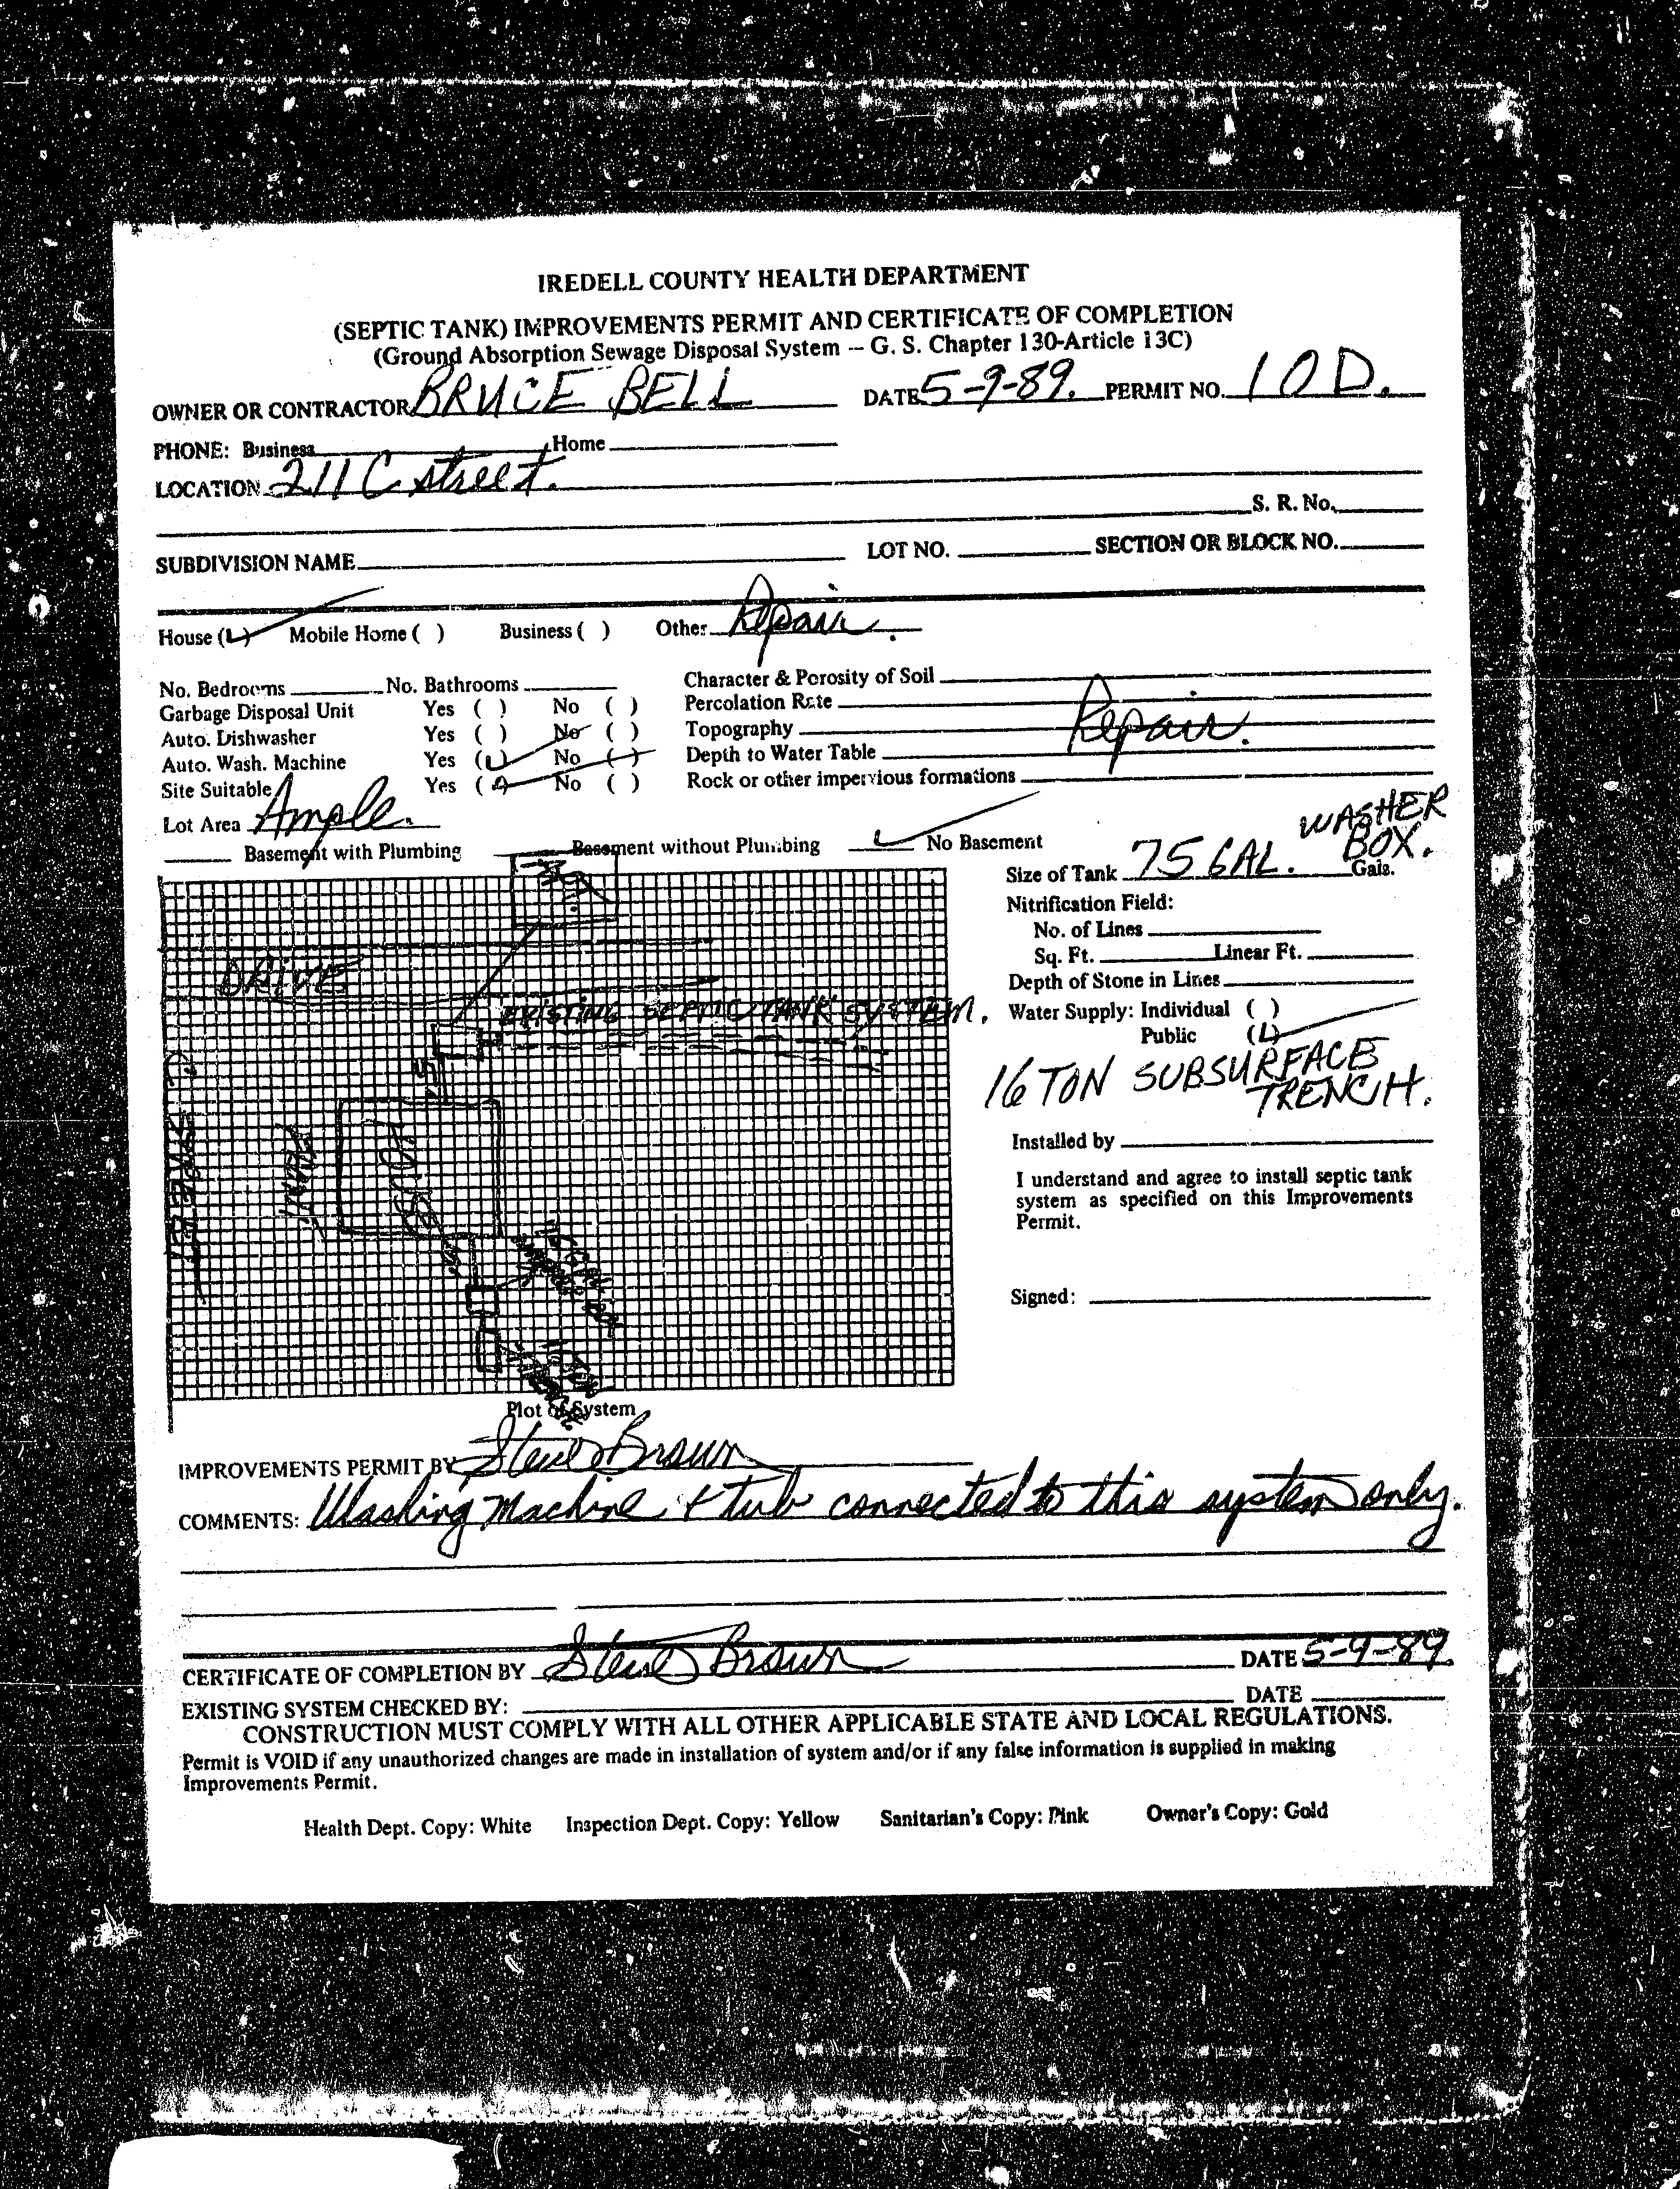 IREDELL COUNTY HEALTH DEPARTMENT
(SEPTIC TANK) IMPROVEMENTS PERMIT AND CERTIFICATE OF COMPLETION
(Ground Absorption Sewage Disposal System -- G. S. Chapter 130-Article 13C)
OWNER OR CONTRACTOR BRUCE BELL DATE 5-9-89. PERMIT NO. 10D.
PHONE: Business Home
LOCATION 211 C street.
S. R. No.
SUBDIVISION NAME LOT NO. SECTION OR BLOCK NO.
House (L) Mobile Home ( ) Business ( ) Other Repair.
No. Bedrooms No. Bathrooms Character & Porosity of Soil
Garbage Disposal Unit Yes ( ) No ( ) Percolation Rate
Auto. Dishwasher Yes ( ) No ( ) Topography Repair.
Auto. Wash. Machine Yes (L) No ( ) Depth to Water Table
Site Suitable Yes (L) No ( ) Rock or other impervious formations
Lot Area Ample.
Basement with Plumbing Basement without Plumbing L No Basement
WASHER BOX.
Size of Tank 75 GAL. Gals.
Nitrification Field:
No. of Lines
Sq. Ft. Linear Ft.
Depth of Stone in Lines
Water Supply: Individual ( )
Public (L)
16 TON SUBSURFACE
TRENCH.
Installed by
I understand and agree to install septic tank
system as specified on this Improvements
Permit.
Signed:
DRIVE
EXISTING SEPTIC TANK SYSTEM.
5'
C. STREET
FRONT
HOUSE
Plot of System
IMPROVEMENTS PERMIT BY Steve Brown
COMMENTS: Washing Machine & tub connected to this system only.
CERTIFICATE OF COMPLETION BY Steve Brown DATE 5-9-89.
EXISTING SYSTEM CHECKED BY: DATE
CONSTRUCTION MUST COMPLY WITH ALL OTHER APPLICABLE STATE AND LOCAL REGULATIONS.
Permit is VOID if any unauthorized changes are made in installation of system and/or if any false information is supplied in making
Improvements Permit.
Health Dept. Copy: White Inspection Dept. Copy: Yellow Sanitarian's Copy: Pink Owner's Copy: Gold